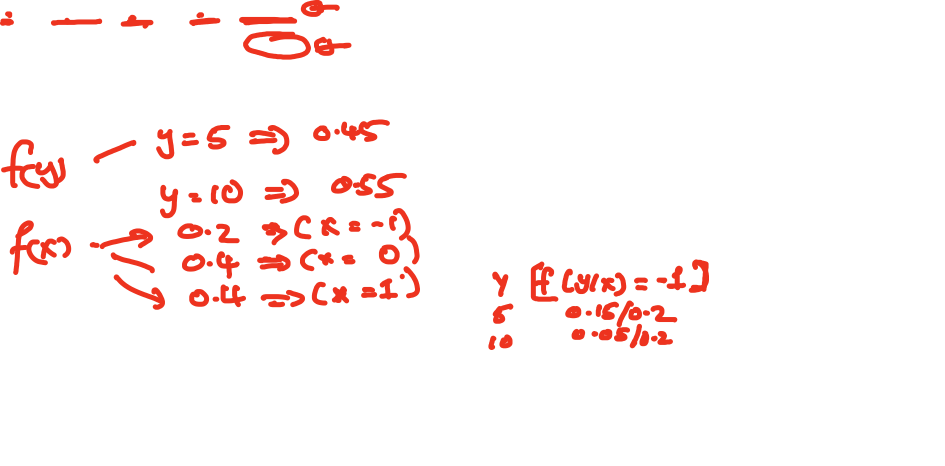 f(y) y = 5 => 0.45
y = 10 => 0.55
f(x) 0.2 => (x = -1)
0.4 => (x = 0)
0.4 => (x = 1)
y [f(y/x) = -1]
5 0.15/0.2
10 0.05/0.2